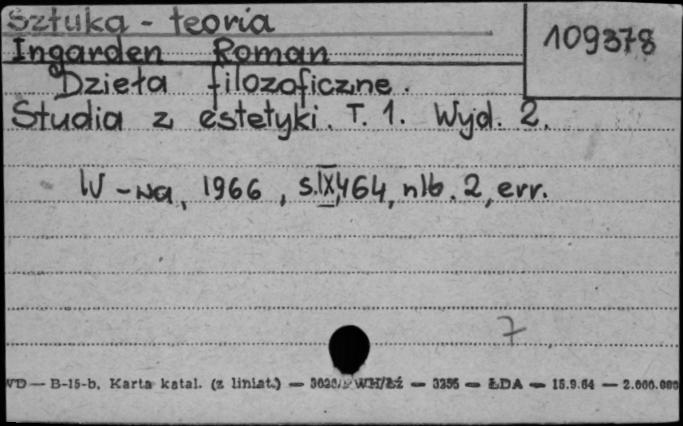 Sztuka - teoria
109378
Ingarden Roman
Dzieła filozoficzne.
Studia z estetyki. T. 1. Wyd. 2.
W-wa, 1966, s.IX,464, nlb. 2, err.
7
B-15-b. Karta katal. (z liniat.) — WH/Łź — 3255 — ŁDA — 15.9.64 — 2.000.000